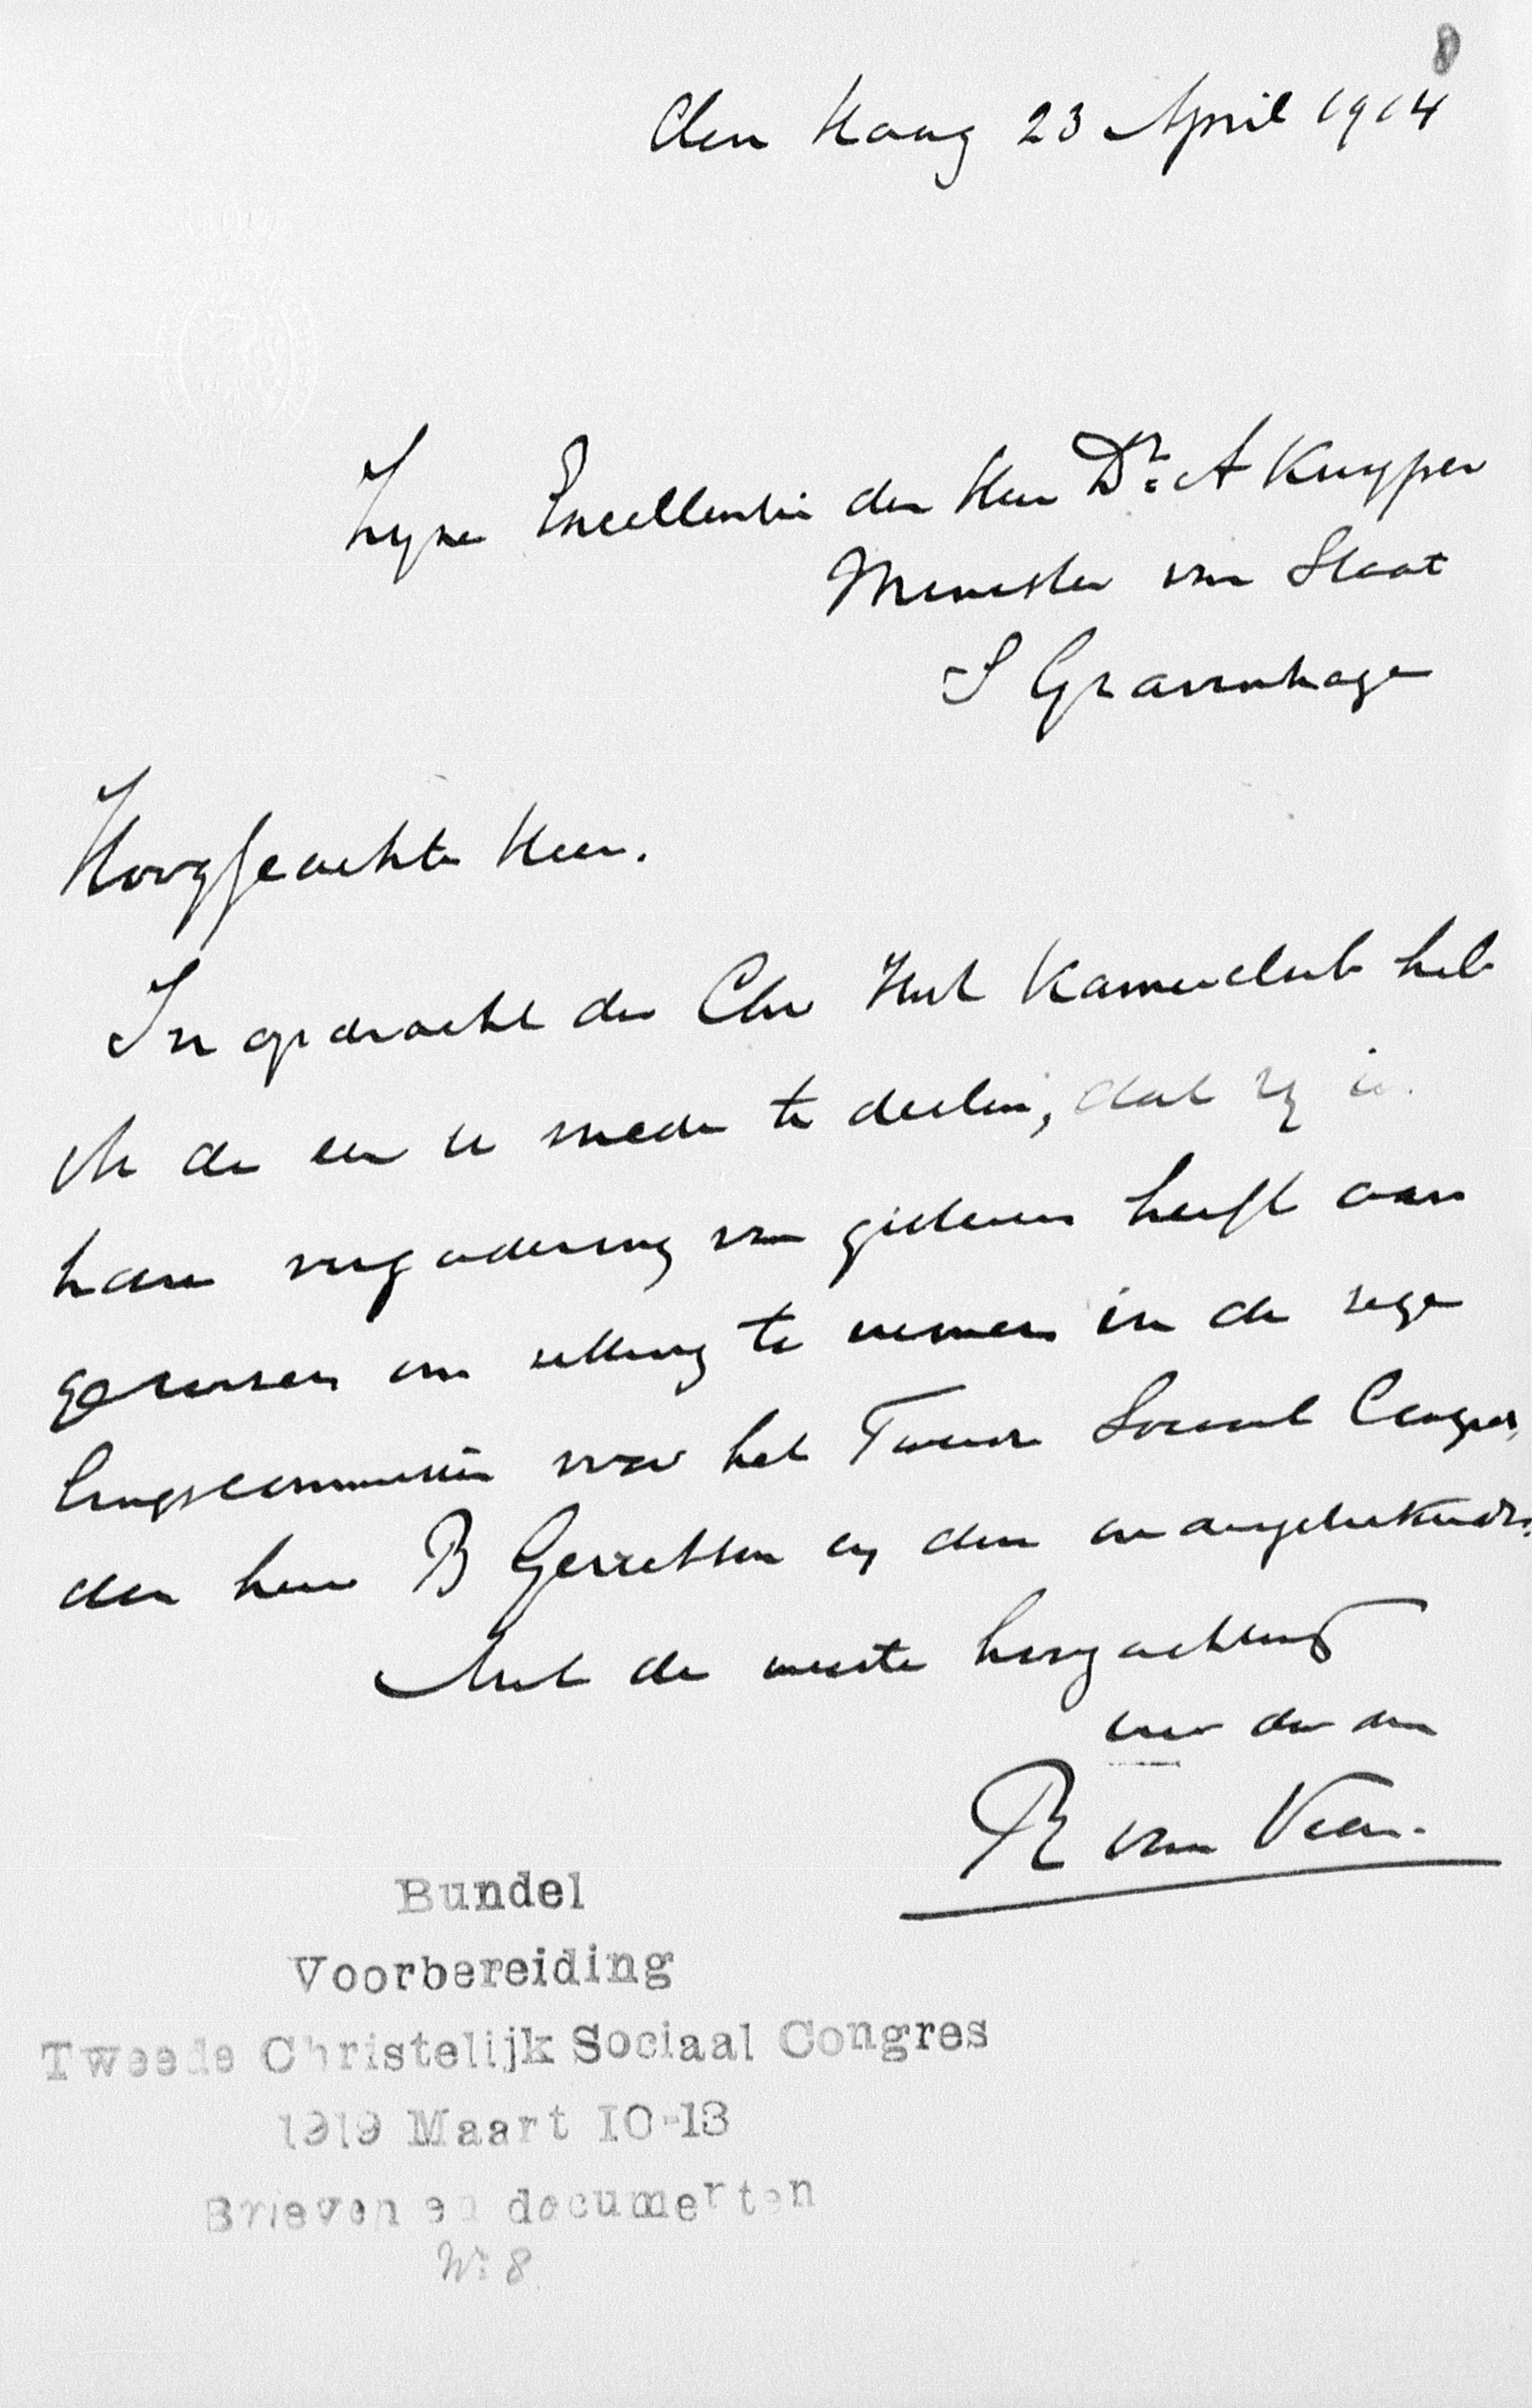 8
den Haag 23 April 1914
Zijne Excellentie den Heer Dr. A Kuyper
Minister van Staat
S Gravenhage
Hooggeachte Heer.
In opdracht der Chr Hist Kamerclub heb
ik de eer u mede te deelen, dat zij in
hare vergadering van gisteren heeft aan
gewezen om zitting te nemen in de rege
lingscommissie voor het Tweede Sociaal Congres,
den heer B Gerretson en den ondergeteekende.
Met de meeste hoogachting
uw dw dn
R van Veen.
Bundel
Voorbereiding
Tweede Christelijk Sociaal Congres
1919 Maart 10-13
Brieven en documenten
No: 8